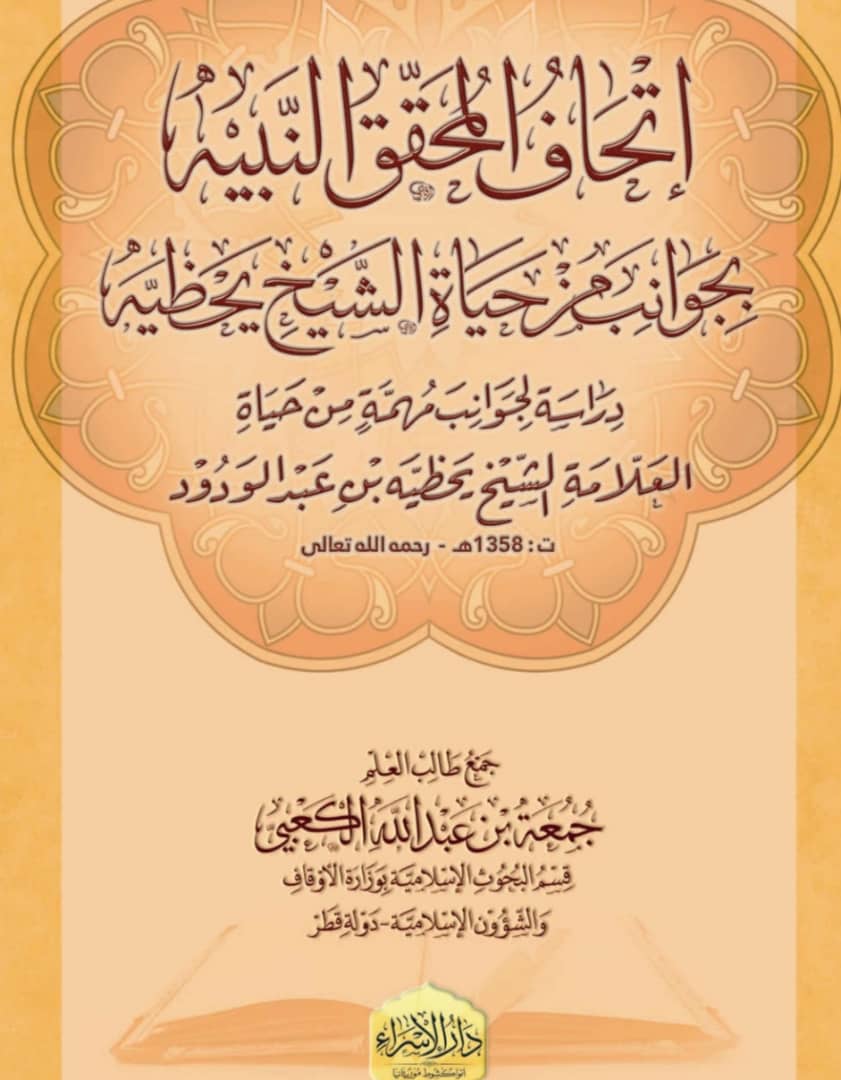 إِتْحَافُ المُحَقِّقِ النَّبِيْهْ
بِجَوَانِبَ مِنْ حَيَاةِ الشَّيْخِ يَحْظِيَهْ
دِرَاسَة لِجَوَانِبَ مُهِمَّةٍ مِنْ حَيَاةِ
العَلّامَةِ الشَّيْخ يَحْظِيَه بْنِ عَبْدِ الوَدُوْدْ
ت : 1358هـ - رحمه الله تعالى
جَمْعُ طَالِبِ العِلْمِ
جُمُعَة بْن عَبْدِ اللَّهِ الكَعْبِيّ
قِسْمُ البُحُوْثِ الإِسْلَامِيَّة بِوَزَارَة الأَوْقَافِ
وَالشُّؤُوْنِ الإِسْلَامِيَّة - دَوْلَة قَطَرْ
دَارُ الإِسْرَاءِ
انواكشوط موريتانيا